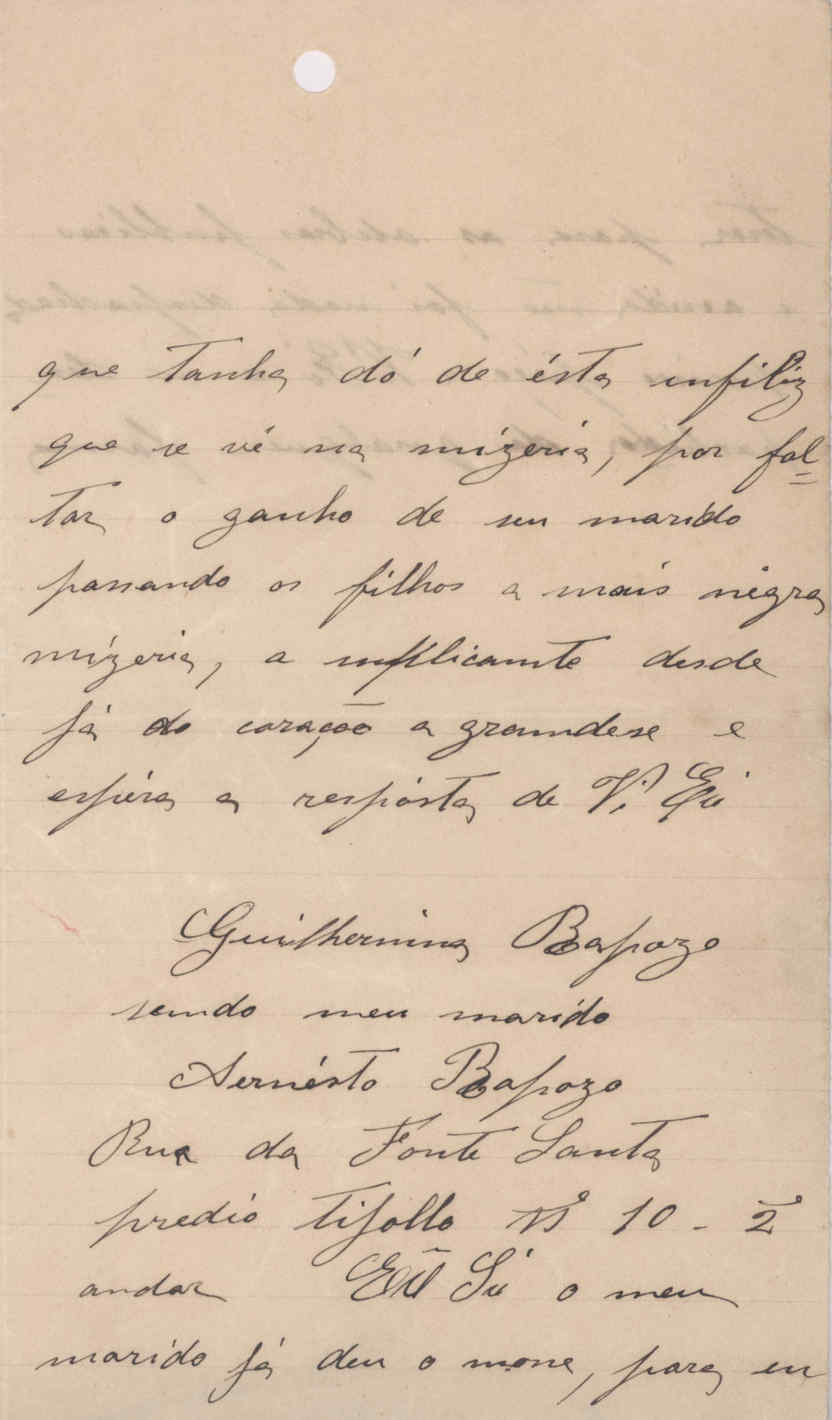 que tanha dó de ésta infiliz
que se vê na mizeria, por fal=
tar o ganho de seu marido
passando os filhos a mais negra
mizeria, a supplicante desde
já do coração agramdese e
espéra a respósta de V.ª Exª
Guilhermina Rapozo
sendo meu marido
Aernésto Rapozo
Rua da Fonte Santa
predio tijollo Nº 10 - 2º
andar o meu
marido já deu o mone, para en